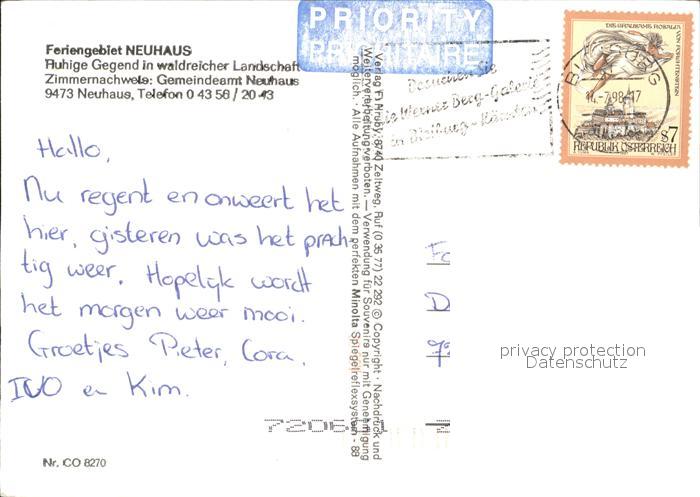 PRIORITY
PRIORITAIRE
Feriengebiet NEUHAUS
Ruhige Gegend in waldreicher Landschaft
Zimmernachweis: Gemeindeamt Neuhaus
9473 Neuhaus, Telefon 0 43 56 / 20 43
Besuchen Sie
die Werner Berg-Galerie
in Bleiburg - Kärnten
14.-7.98-17
S7
REPUBLIK ÖSTERREICH
Hallo,
Nu regent en onweert het
hier, gisteren was het prach-
tig weer. Hopelijk wordt
het morgen weer mooi.
Groetjes Pieter, Cora,
IVO en Kim.
Verlag F. Hruby, 8740 Zeltweg, Ruf (0 35 77) 22 292 © Copyright · Nachdruck und
Weiterverarbeitung verboten. — Verwendung für Souvenirs nur mit Genehmigung
möglich. · Alle Aufnahmen mit dem perfekten Minolta Spiegelreflexsystem - 88
privacy protection
Datenschutz
Nr. CO 8270